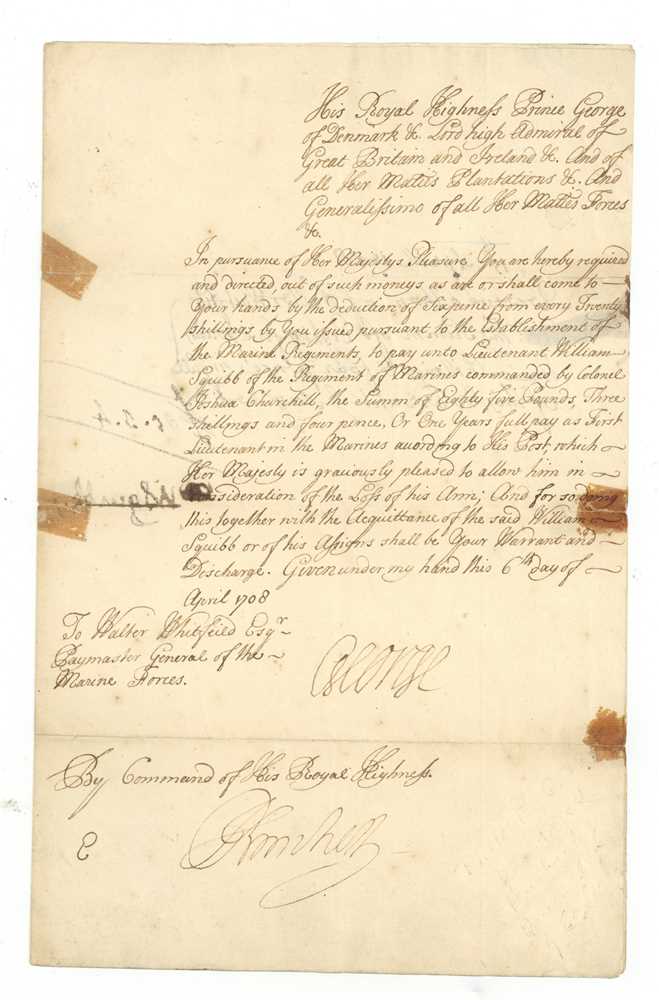 His Royal Highness Prince George
of Denmark &c. Lord high Admiral of
Great Britain and Ireland &c. And of
all Her Maties Plantations &c. And
Generalissimo of all Her Maties Forces
&c.
In pursuance of Her Majestys Pleasure You are hereby required
and directed, out of such moneys as are or shall come to
Your hands by the deduction of Sixpence from every Twenty
shillings by You issued pursuant to the Establishment of
the Marine Regiments, to pay unto Lieutenant William
Squibb of the Regiment of Marines commanded by Colonel
Joshua Churchill, the Summ of Eighty five Pounds, Three
shillings and four pence, Or One Years full pay as First
Lieutenant in the Marines according to His Post, which
Her Majesty is graciously pleased to allow him in
Consideration of the Loss of his Arm; And for so doing
this together with the Acquittance of the said William
Squibb or of his Assigns shall be Your Warrant and
Discharge. Given under my hand this 6th day of
April 1708
George
To Walter Whitfeild Esqr
Paymaster General of the
Marine Forces.
By Command of His Royal Highness.